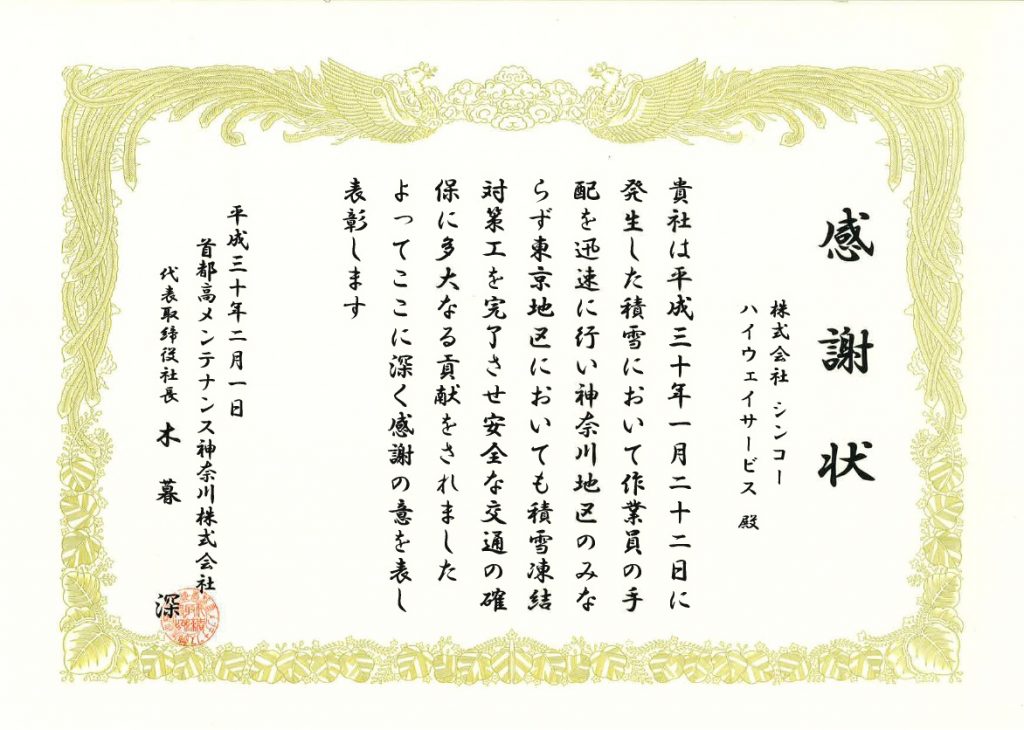 感謝状
株式会社 シンコー
ハイウェイサービス 殿
貴社は平成三十年一月二十二日に
発生した積雪において作業員の手
配を迅速に行い神奈川地区のみな
らず東京地区においても積雪凍結
対策工を完了させ安全な交通の確
保に多大なる貢献をされました
よってここに深く感謝の意を表し
表彰します
平成三十年二月一日
首都高メンテナンス神奈川株式会社
代表取締役社長 木暮 深